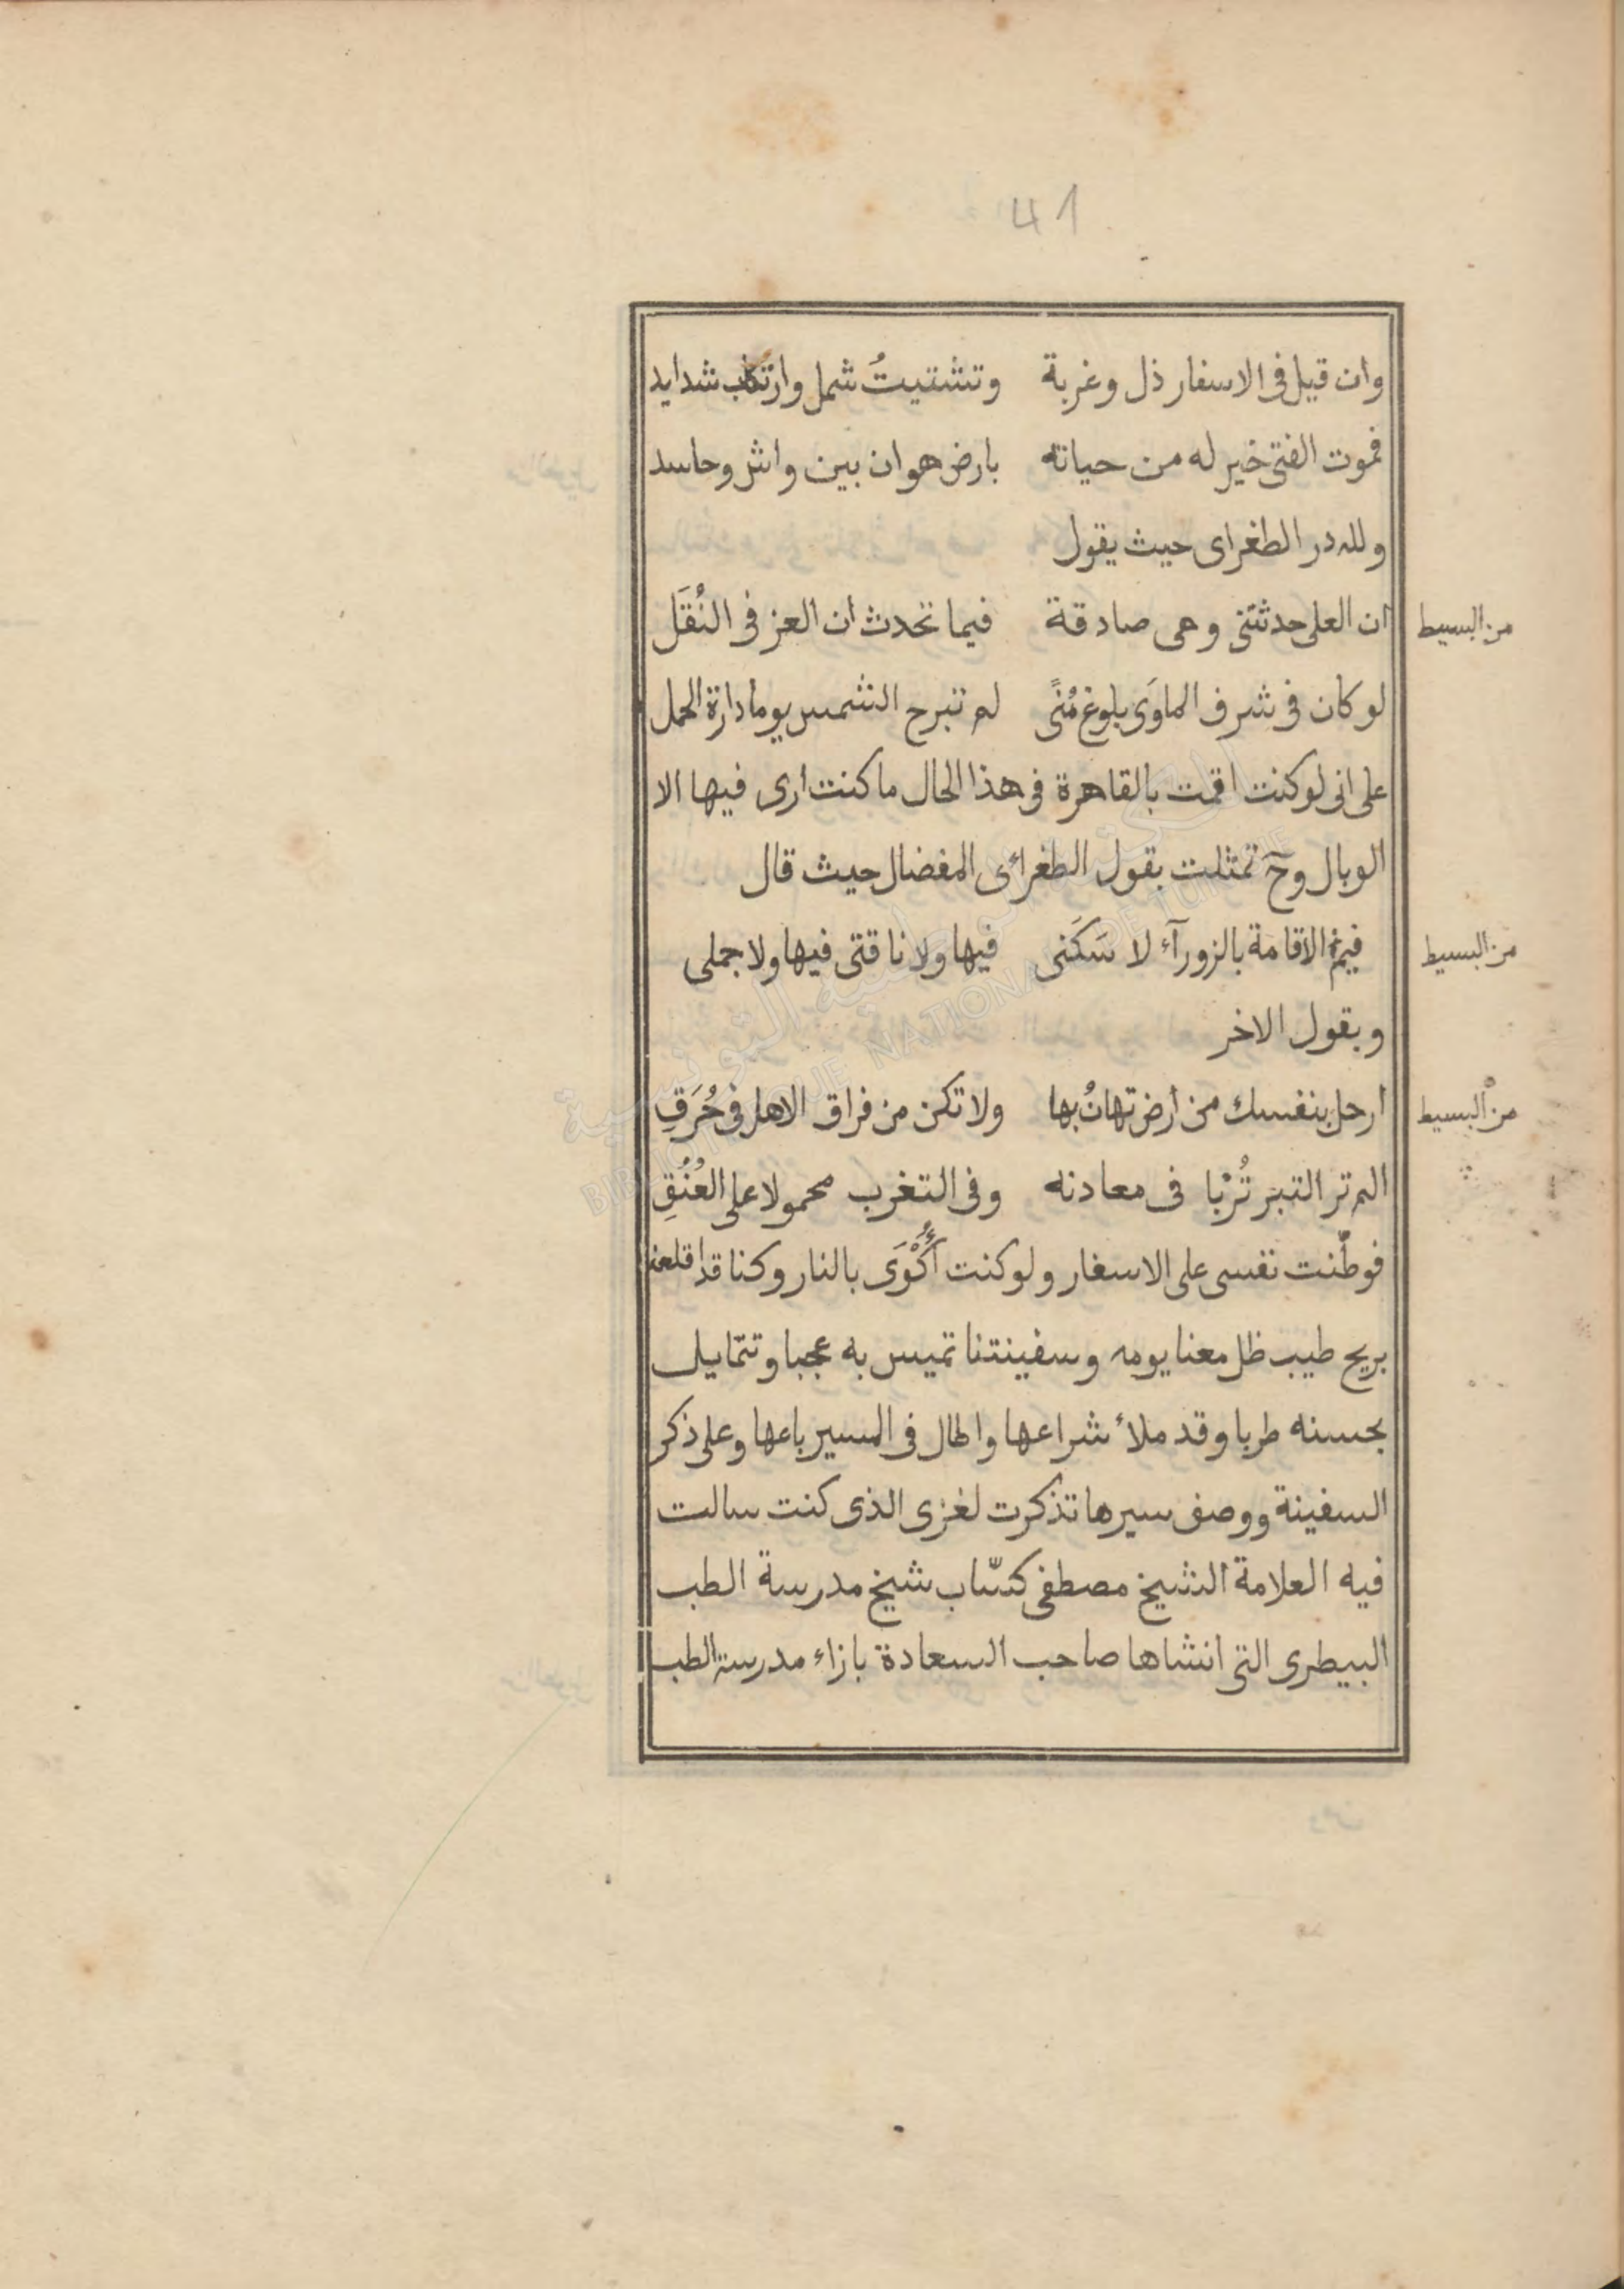 41
وان قيل فى الاسفار ذل وغربة وتشتيتُ شمل وارتكاب شدايد
فموت الفتى خير له من حياته بارض هوان بين واش وحاسد
ولله در الطغراى حيث يقول
ان العلى حدثتنى وهى صادقة فيما تحدث ان العز فى النُقَل
من البسيط
لو كان فى شرف الماوَى بلوغ مُنًى لم تبرح الشمس يوما دارة الحمل
على انى لو كنت اقمت بالقاهرة فى هذا الحال ما كنت ارى فيها الا
الوبال وحَ تمثلت بقول الطغرائى المفضال حيث قال
فيم الاقامة بالزورآء لا سَكَنى فيها ولا ناقتى فيها ولا جملى
من البسيط
وبقول الاخر
ارحل بنفسك من أرض تهانُ بها ولا تكن من فراق الاهل فى حُرَقِ
من البسيط
الم تر التبر تُرْبا فى معادنه وفى التغرب محمولا على العُنُقِ
فوطّنت نفسى على الاسفار ولو كنت أُكْوَى بالنار وكنا قد اقلعنا
بريح طيب ظل معنا يومه وسفينتنا تميس به عجبا وتتمايل
بحسنه طربا وقد ملأ شراعها واطال فى المسير باعها وعلى ذكر
السفينة ووصف سيرها تذكرت لغزى الذى كنت سالت
فيه العلامة الشيخ مصطفى كسّاب شيخ مدرسة الطب
البيطرى التى انشاها صاحب السعادة بازاء مدرسة الطب
المكتبة الوطنية التونسية
BIBLIOTHEQUE NATIONALE DE TUNISIE